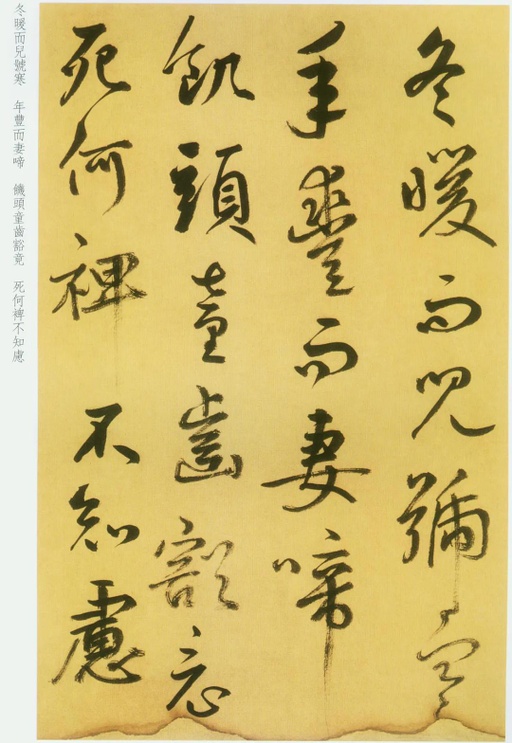 冬暖而兒號寒
年豐而妻啼
飢頭童齒豁竟
死何裨不知慮
冬暖而兒號寒 年豐而妻啼 饑頭童齒豁竟 死何裨不知慮